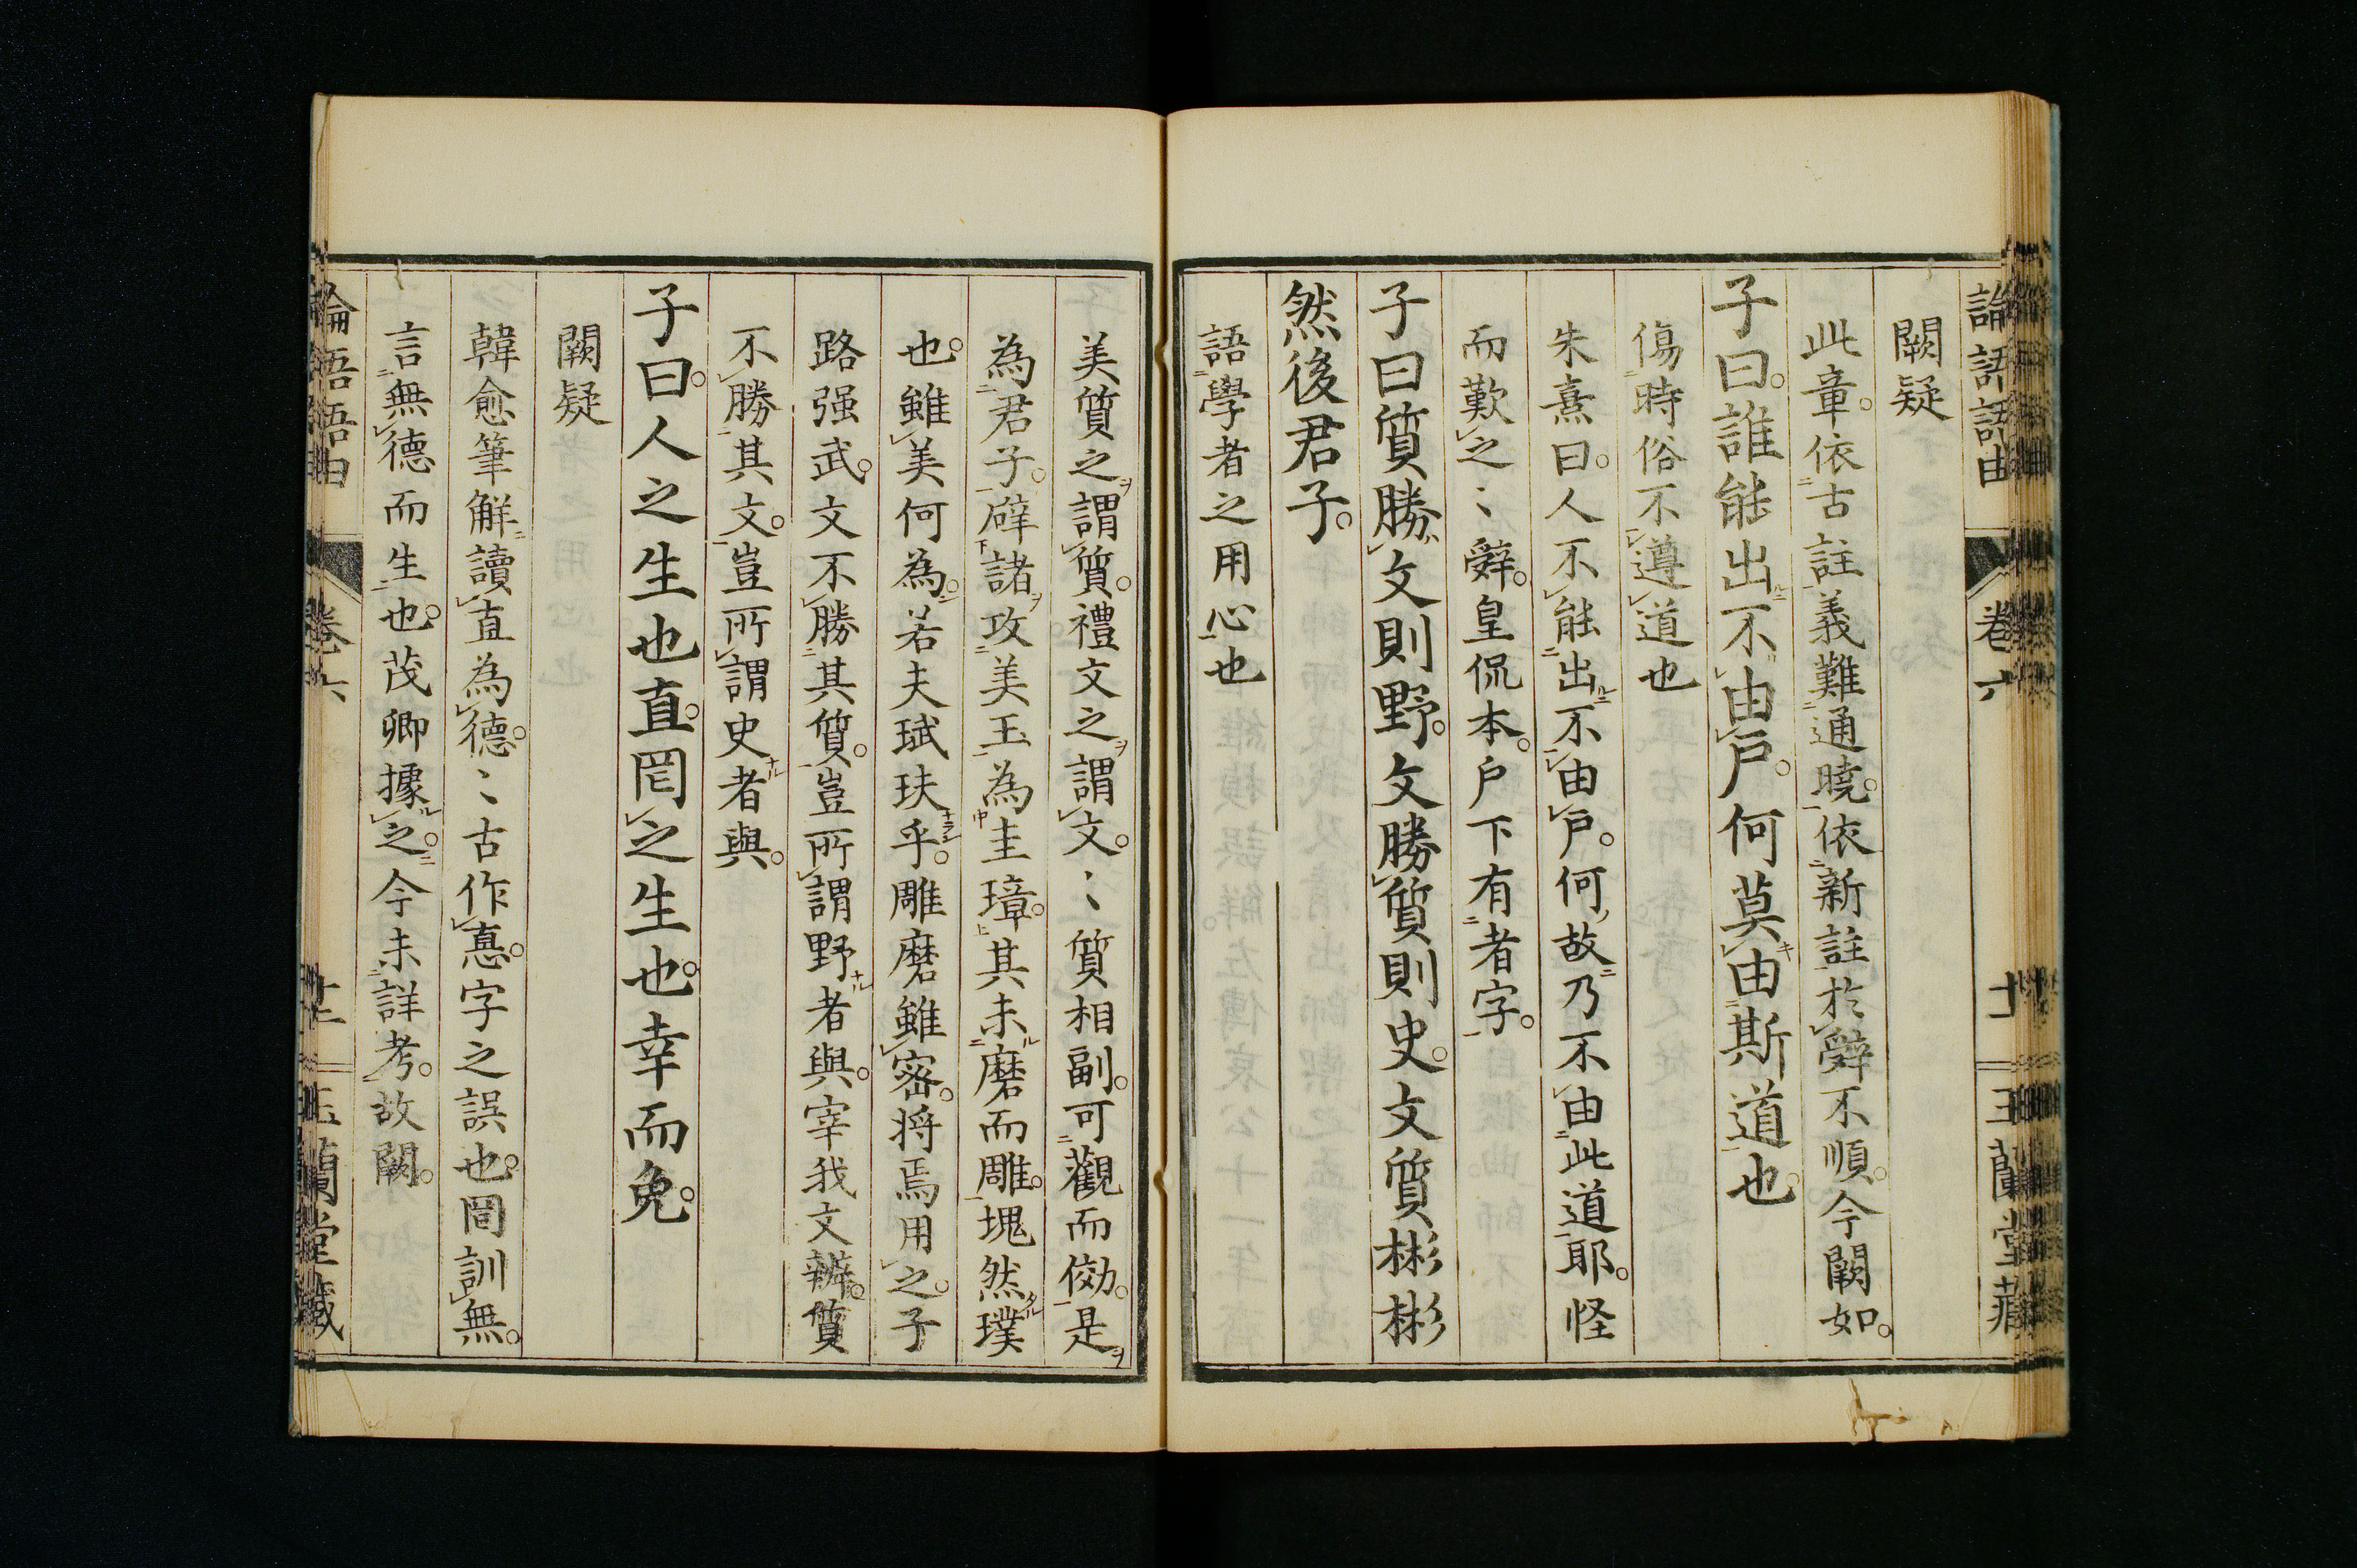 論語語由 卷六 十一 玉蘭堂藏
闕疑
此章依古註義難通曉依新註於辤不順今闕如
子曰誰能出不由戸何莫由斯道也
傷時俗不遵道也
朱熹曰人不能出不由戸何故乃不由此道耶怪
而歎之〻辤皇侃本戸下有者字
子曰質勝文則野文勝質則史文質彬彬
然後君子
語學者之用心也
美質之謂質禮文之謂文〻質相副可觀而傚是
為君子辟諸攻美玉為圭璋其未磨而雕塊然璞
也雖美何為若夫珷玞乎雕磨雖密将焉用之子
路强武文不勝其質豈所謂野者與宰我文辨質
不勝其文豈所謂史者與
子曰人之生也直罔之生也幸而免
闕疑
韓愈筆解讀直為德〻古作悳字之誤也罔訓無
言無德而生也茂卿據之今未詳考故闕
論語語由 卷六 十二 玉蘭堂藏